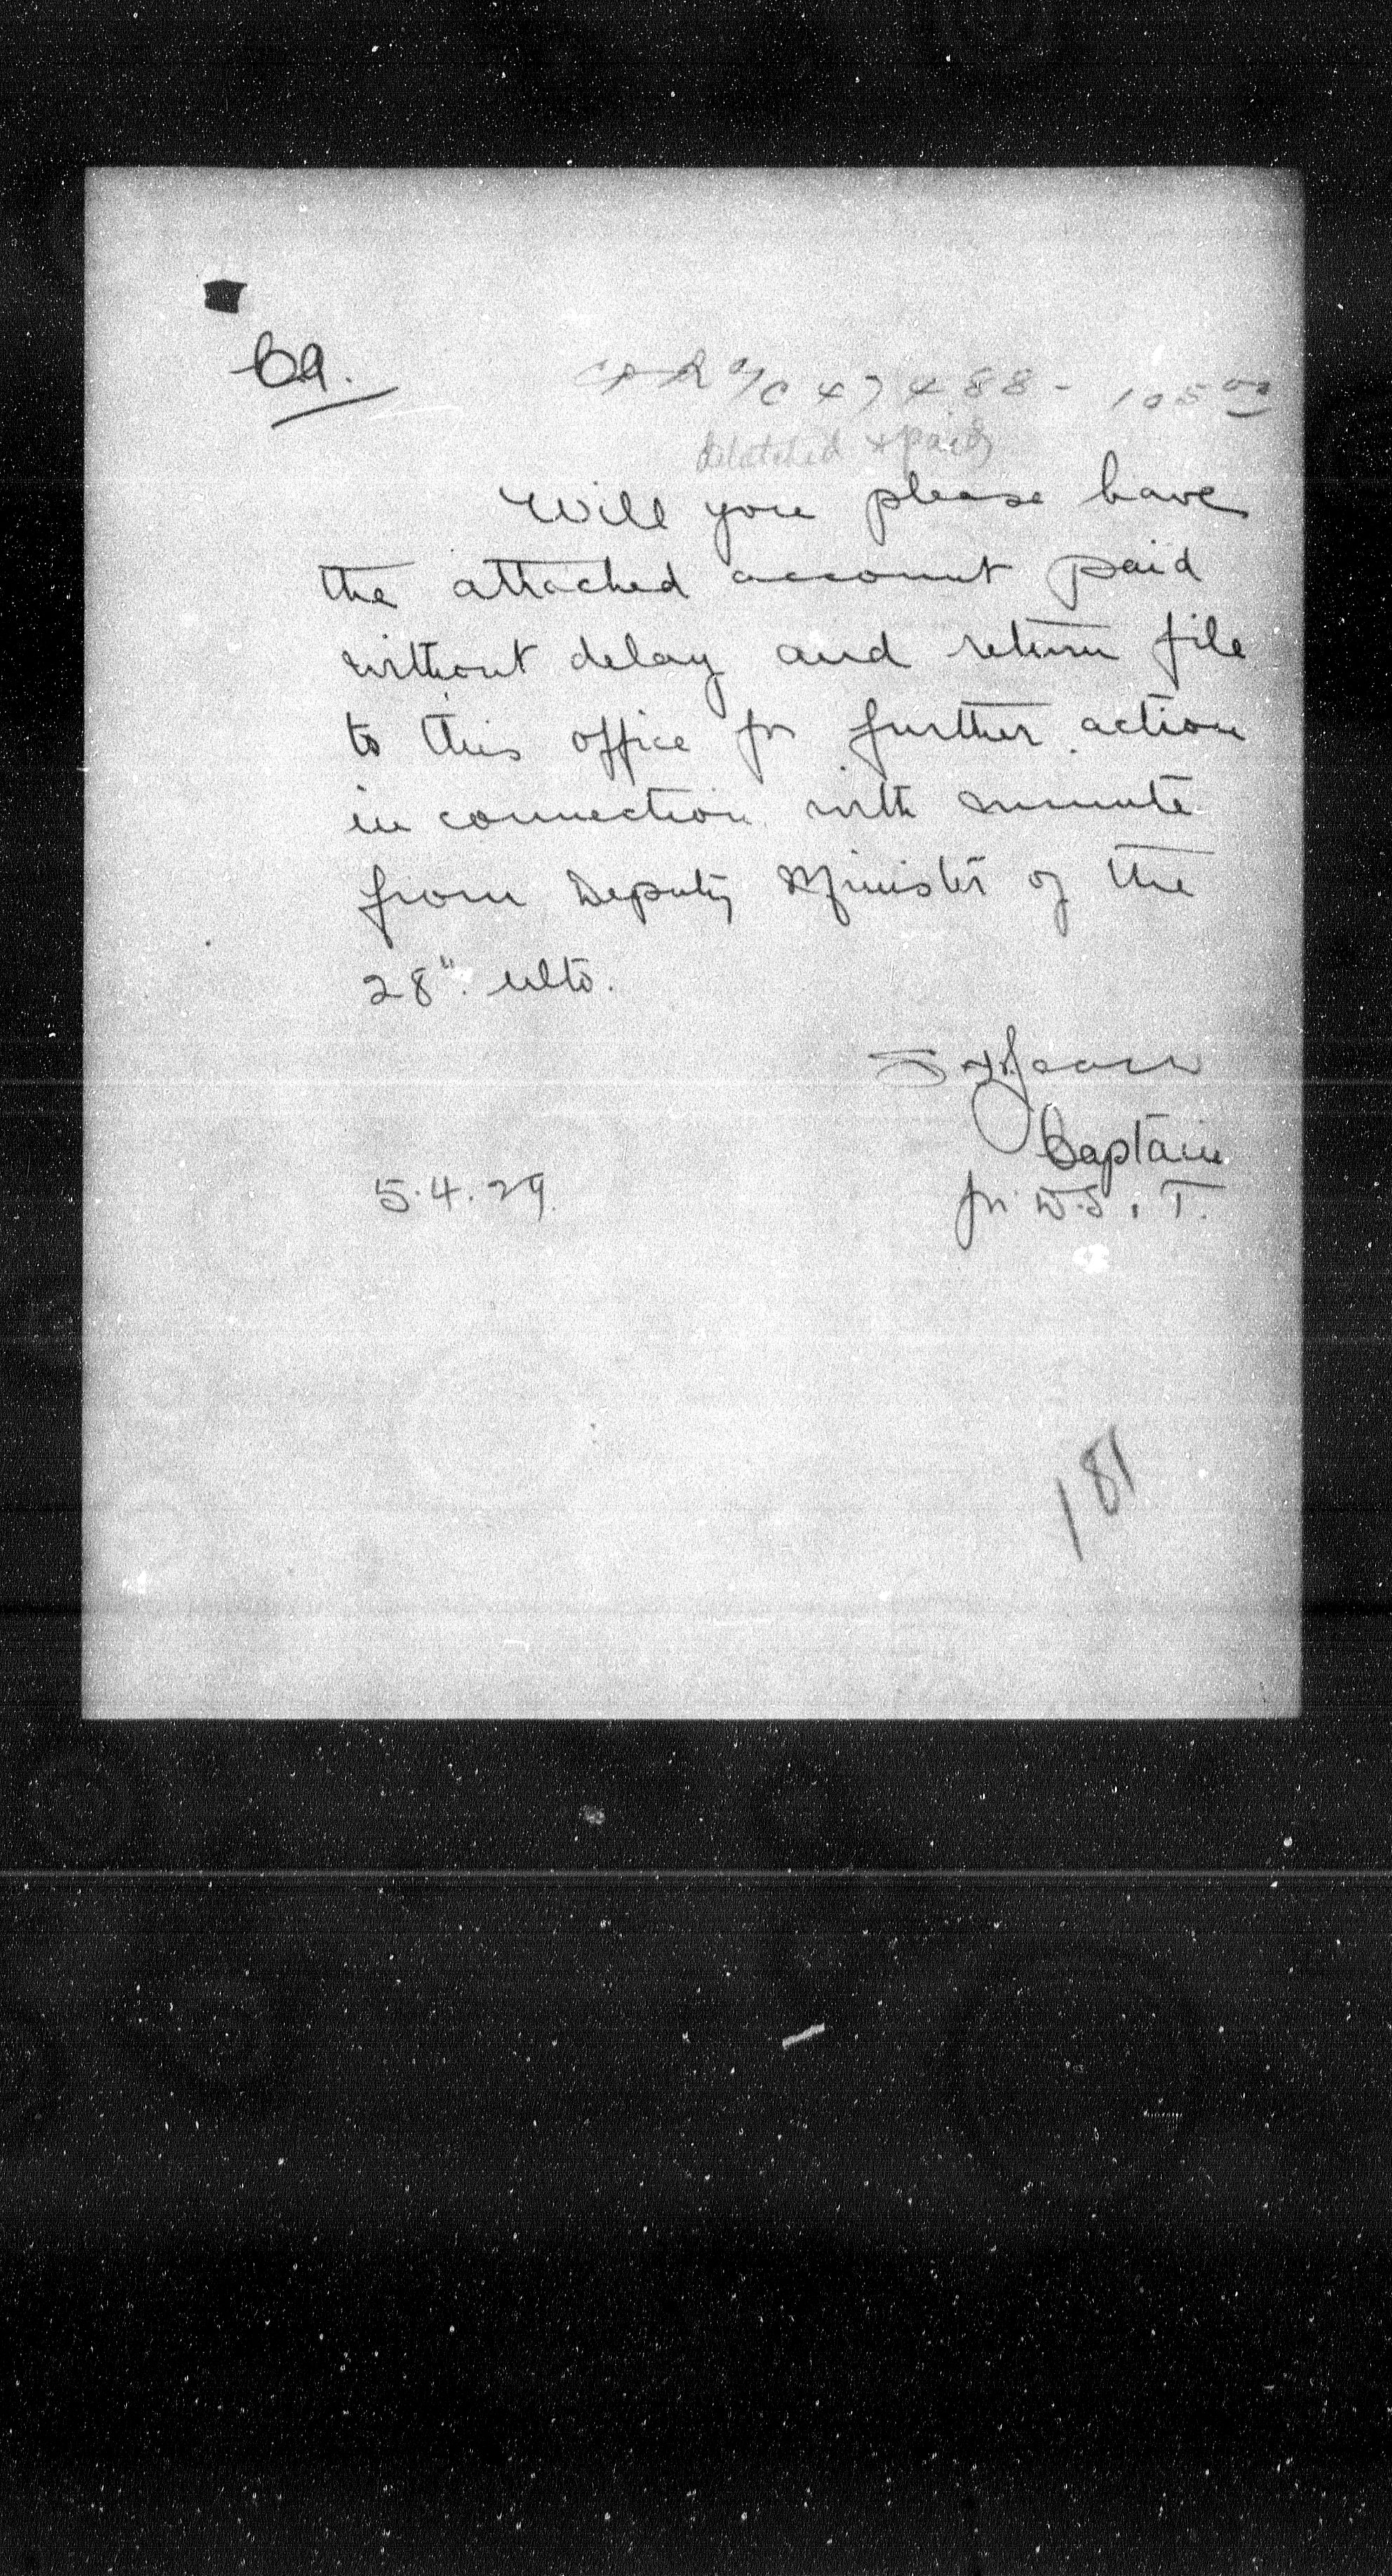 CA.
CPR a/c 47488 - 105 00
detached & paid
Will you please have
the attached account paid
without delay and return file
to this office for further action
in connection with minute
from Deputy Minister of the
28". ulto.
Captain
5.4.29. for D.S.T.
181